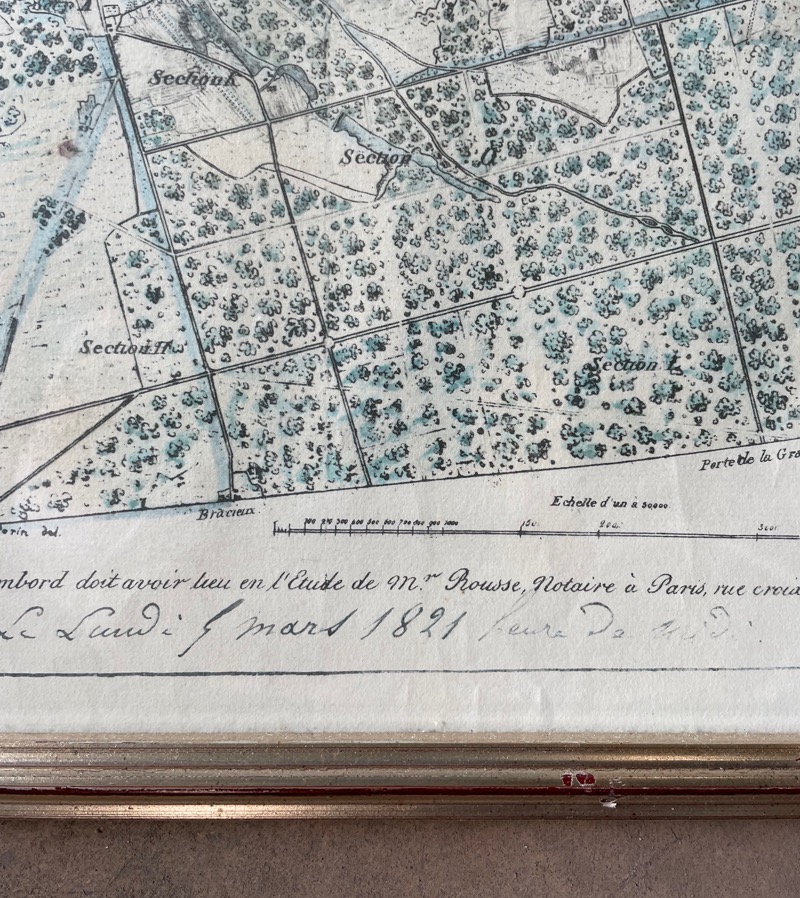 Section K
Section G
Section H
Section I
Porte de la Gra
Bracieux
Echelle d'un à 50000
100 200 300 400 500 600 700 800 900 1000
orin del.
mbord doit avoir lieu en l'Etude de M.r Rousse, Notaire à Paris, rue croix
Le Lundi 5 mars 1821 heure De midi